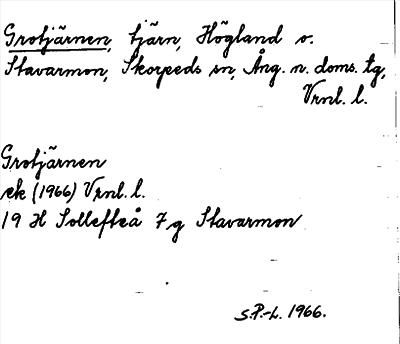 Grotjärnen, tjärn, Högland o.
Stavarmon, Skorpeds sn, Ång. n. doms. tg,
Vrnl. l.
Grotjärnen
ek (1966) Vrnl. l.
19 H Sollefteå 7 g Stavarmon
S.P.-L. 1966.